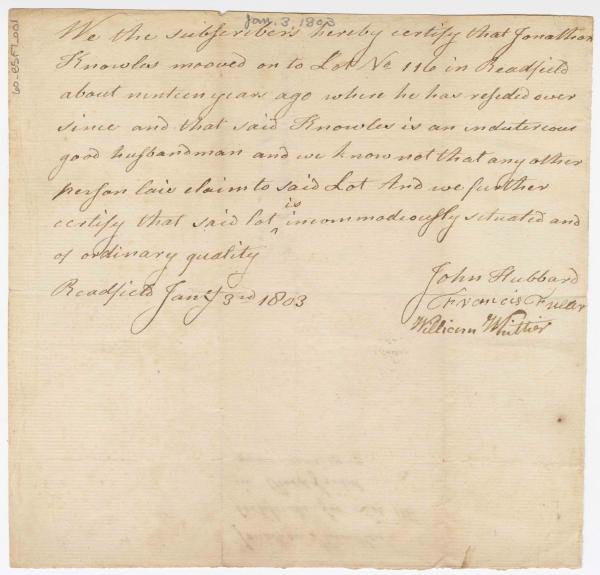 Jan. 3, 1803
We the subscribers hereby certify that Jonathan
Knowles mooved on to Lot No 116 in Readfield
about ninteen years ago where he has resided ever
since and that said Knowles is an industereous
good husbandman and we know not that any other
person laies claim to said Lot And we further
certify that said lot is incommodeously situated and
of ordinary quality
Readfield Jany 3rd 1803
John Hubbard
Francis Fuller
William Whittier